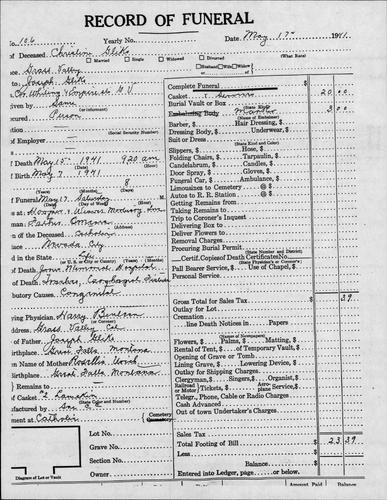 RECORD OF FUNERAL
No. 106 Yearly No. Date May 17 1941
of Deceased Christine Glik
Married Single Widowed Divorced (What Race)
Husband Wife Widow
Grass Valley
to Joseph Glik
Cor. Whiting & Empire St. G. V.
given by Same
Person
(Social Security Number)
of Employer
f Death May 15 1941 9 20 am
f Birth May 7, 1941
8
(Years) (Months) (Days)
of Funeral May 17 Saturday
(Date) (Day of Week)
es at: Hooper & Weaver Mortuary
man Father
(Address)
n of the Deceased Catholic
Nevada City
d in the State
(or U.S., City or County)
of Death Jones Memorial Hospital
of Death: Trachea, Esophageal Fistula
butory Causes Congenital
ying Physician Harry
ddress Grass Valley Cal
of Father Joseph Glik
irthplace Great Falls Montana
n Name of Mother Rosella
irthplace Great Falls Montana
Remains to
of Casket
factured by
ment at Catholic
Cemetery
Diagram of Lot or Vault
Lot No.
Grave No.
Section No.
Owner
Complete Funeral
Casket & Service 20 00
Burial Vault or Box
(State Kind)
Embalming Body 3 00
(Name of Embalmer)
Barber, $ Hair Dressing, $
Dressing Body, $ Underwear, $
Suit or Dress
(State Kind and Color)
Slippers, $ Hose, $
Folding Chairs, $ Tarpaulin, $
Candelabrum, $ Candles, $
Door Spray, $ Gloves, $
Funeral Car, $ Ambulance, $
Limousines to Cemetery @ $
Autos to R. R. Station @ $
Getting Remains from
Taking Remains to
Trip to Coroner's Inquest
Delivering Box to
Deliver Flowers to
Removal Charges
Procuring Burial Permit
(State Number and District)
Certif. Copies of Death Certificates No.
(State Physician's or Coroner's)
Pall Bearer Service, $ Use of Chapel, $
Personal Service
Gross Total for Sales Tax $ 39
Outlay for Lot
Cremation
line Death Notices in Papers
(Names of Newspapers)
Flowers, $ Palms, $ Matting, $
Rental of Tent, $ of Temporary Vault, $
Opening of Grave or Tomb
Lining Grave, $ Lowering Device, $
Outlay for Shipping Charges
Clergyman, $ Singers, $ Organist, $
Railroad or Motor Tickets, $ Aeroplane Service, $
Telegr., Phone, Cable or Radio Charges
Cash Advanced
Out of town Undertaker's Charges
Sales Tax
Total Footing of Bill $ 23 39
Less
Balance
Entered into Ledger, page or below.
Amount Paid Balance